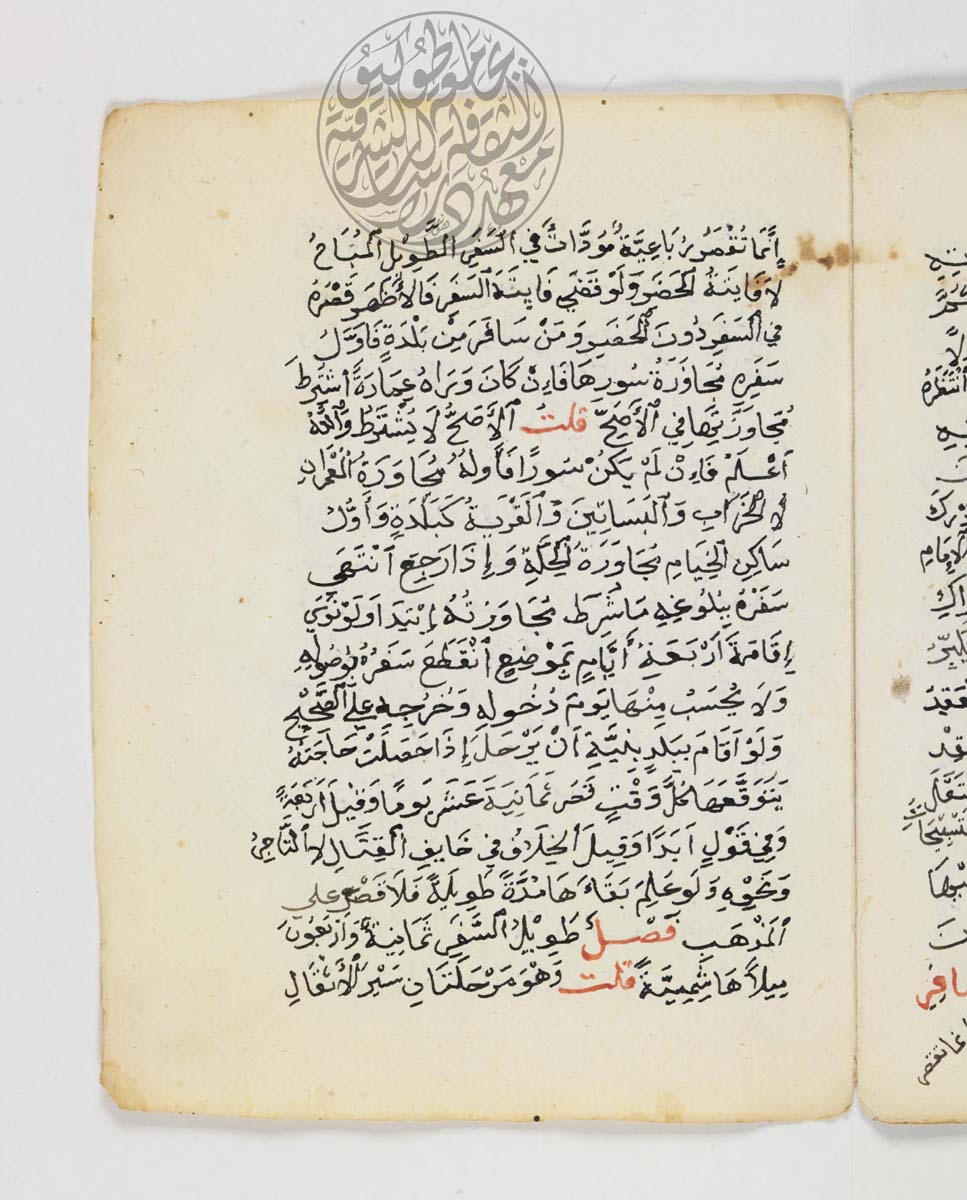 إِنَّمَا تُقْصَرُ رُبَاعِيَّةٌ مُؤَدَّاةٌ فِي السَّفَرِ الطَّوِيلِ الْمُبَاحِ
لَا فَايِتَةُ الْحَضَرِ وَلَوْ قَضَى فَايِتَةَ السَّفَرِ فَالْأَظْهَرُ قَصْرُهُ
فِي السَّفَرِ دُونَ الْحَضَرِ وَمَنْ سَافَرَ مِنْ بَلْدَةٍ فَأَوَّلُ
سَفَرِهِ مُجَاوَزَةُ سُورِهَا فَإِنْ كَانَ وَرَاهُ عِمَارَةٌ اشْتُرِطَ
مُجَاوَزَتِهَا فِي الْأَصَحِّ قلت الْأَصَحُّ لَا يُشْتَرَطُ وَاللَّهُ
أَعْلَمُ فَإِنْ لَمْ يَكُنْ سُورًا فَأَوَّلُهُ مُجَاوَزَةُ الْعُمْرَانِ
لَا الْخَرَابِ وَالْبَسَاتِينَ وَالْقَرْيَةُ كَبَلْدَةٍ وَأَوَّلُ
سَاكِنِ الْخِيَامِ مُجَاوَزَةُ الْحِلَّةِ وَإِذَا رَجَعَ انْتَهَى
سَفَرُهُ بِبُلُوغِهِ مَا شُرِطَ مُجَاوَزَتُهُ ابْتِدَا وَلَوْ نَوَي
إِقَامَةَ أَرْبَعَةِ أَيَّامٍ بِمَوْضِعٍ انْقَطَعَ سَفَرُهُ بِوُصُولِهِ
وَلَا يُحْسَبُ مِنْهَا يَوْمَ دُخُولِهِ وَخُرُجِهِ عَلَى الصَّحِيْحِ
وَلَوْ أَقَامَ بِبَلَدٍ بِنِيَّةِ أَنْ يَرْحَلَ إِذَا حَصَلَتْ حَاجَتُهُ
يَتَوَقَّعَهَا كُلَّ وَقْتٍ قَصَرَ ثَمَانِيَةَ عَشَرَ يَوْمًا وَقِيلَ أَرْبَعَةً
وَفِي قَوْلٍ أَبَدًا وَقِيلَ الْخِلَافُ فِي خَايِفِ الْقِتَالِ لَا التَّاجِرُ
وَنَحْوِهِ وَلَوْ عَلِمَ بَقَاءَهَا مُدَّةً طَوِيلَةً فَلَا قَصْرَ علي
الْمَذْهَبِ فَصْلٌ طَوِيلُ السَّفَرِ ثَمَانِيَةٌ وَأَرْبَعُونَ
مِيلًا هَاشِمِيَّةً قلت وَهْوَ مَرْحَلَتَانِ سَيْرِ الْأَثْقَالِ